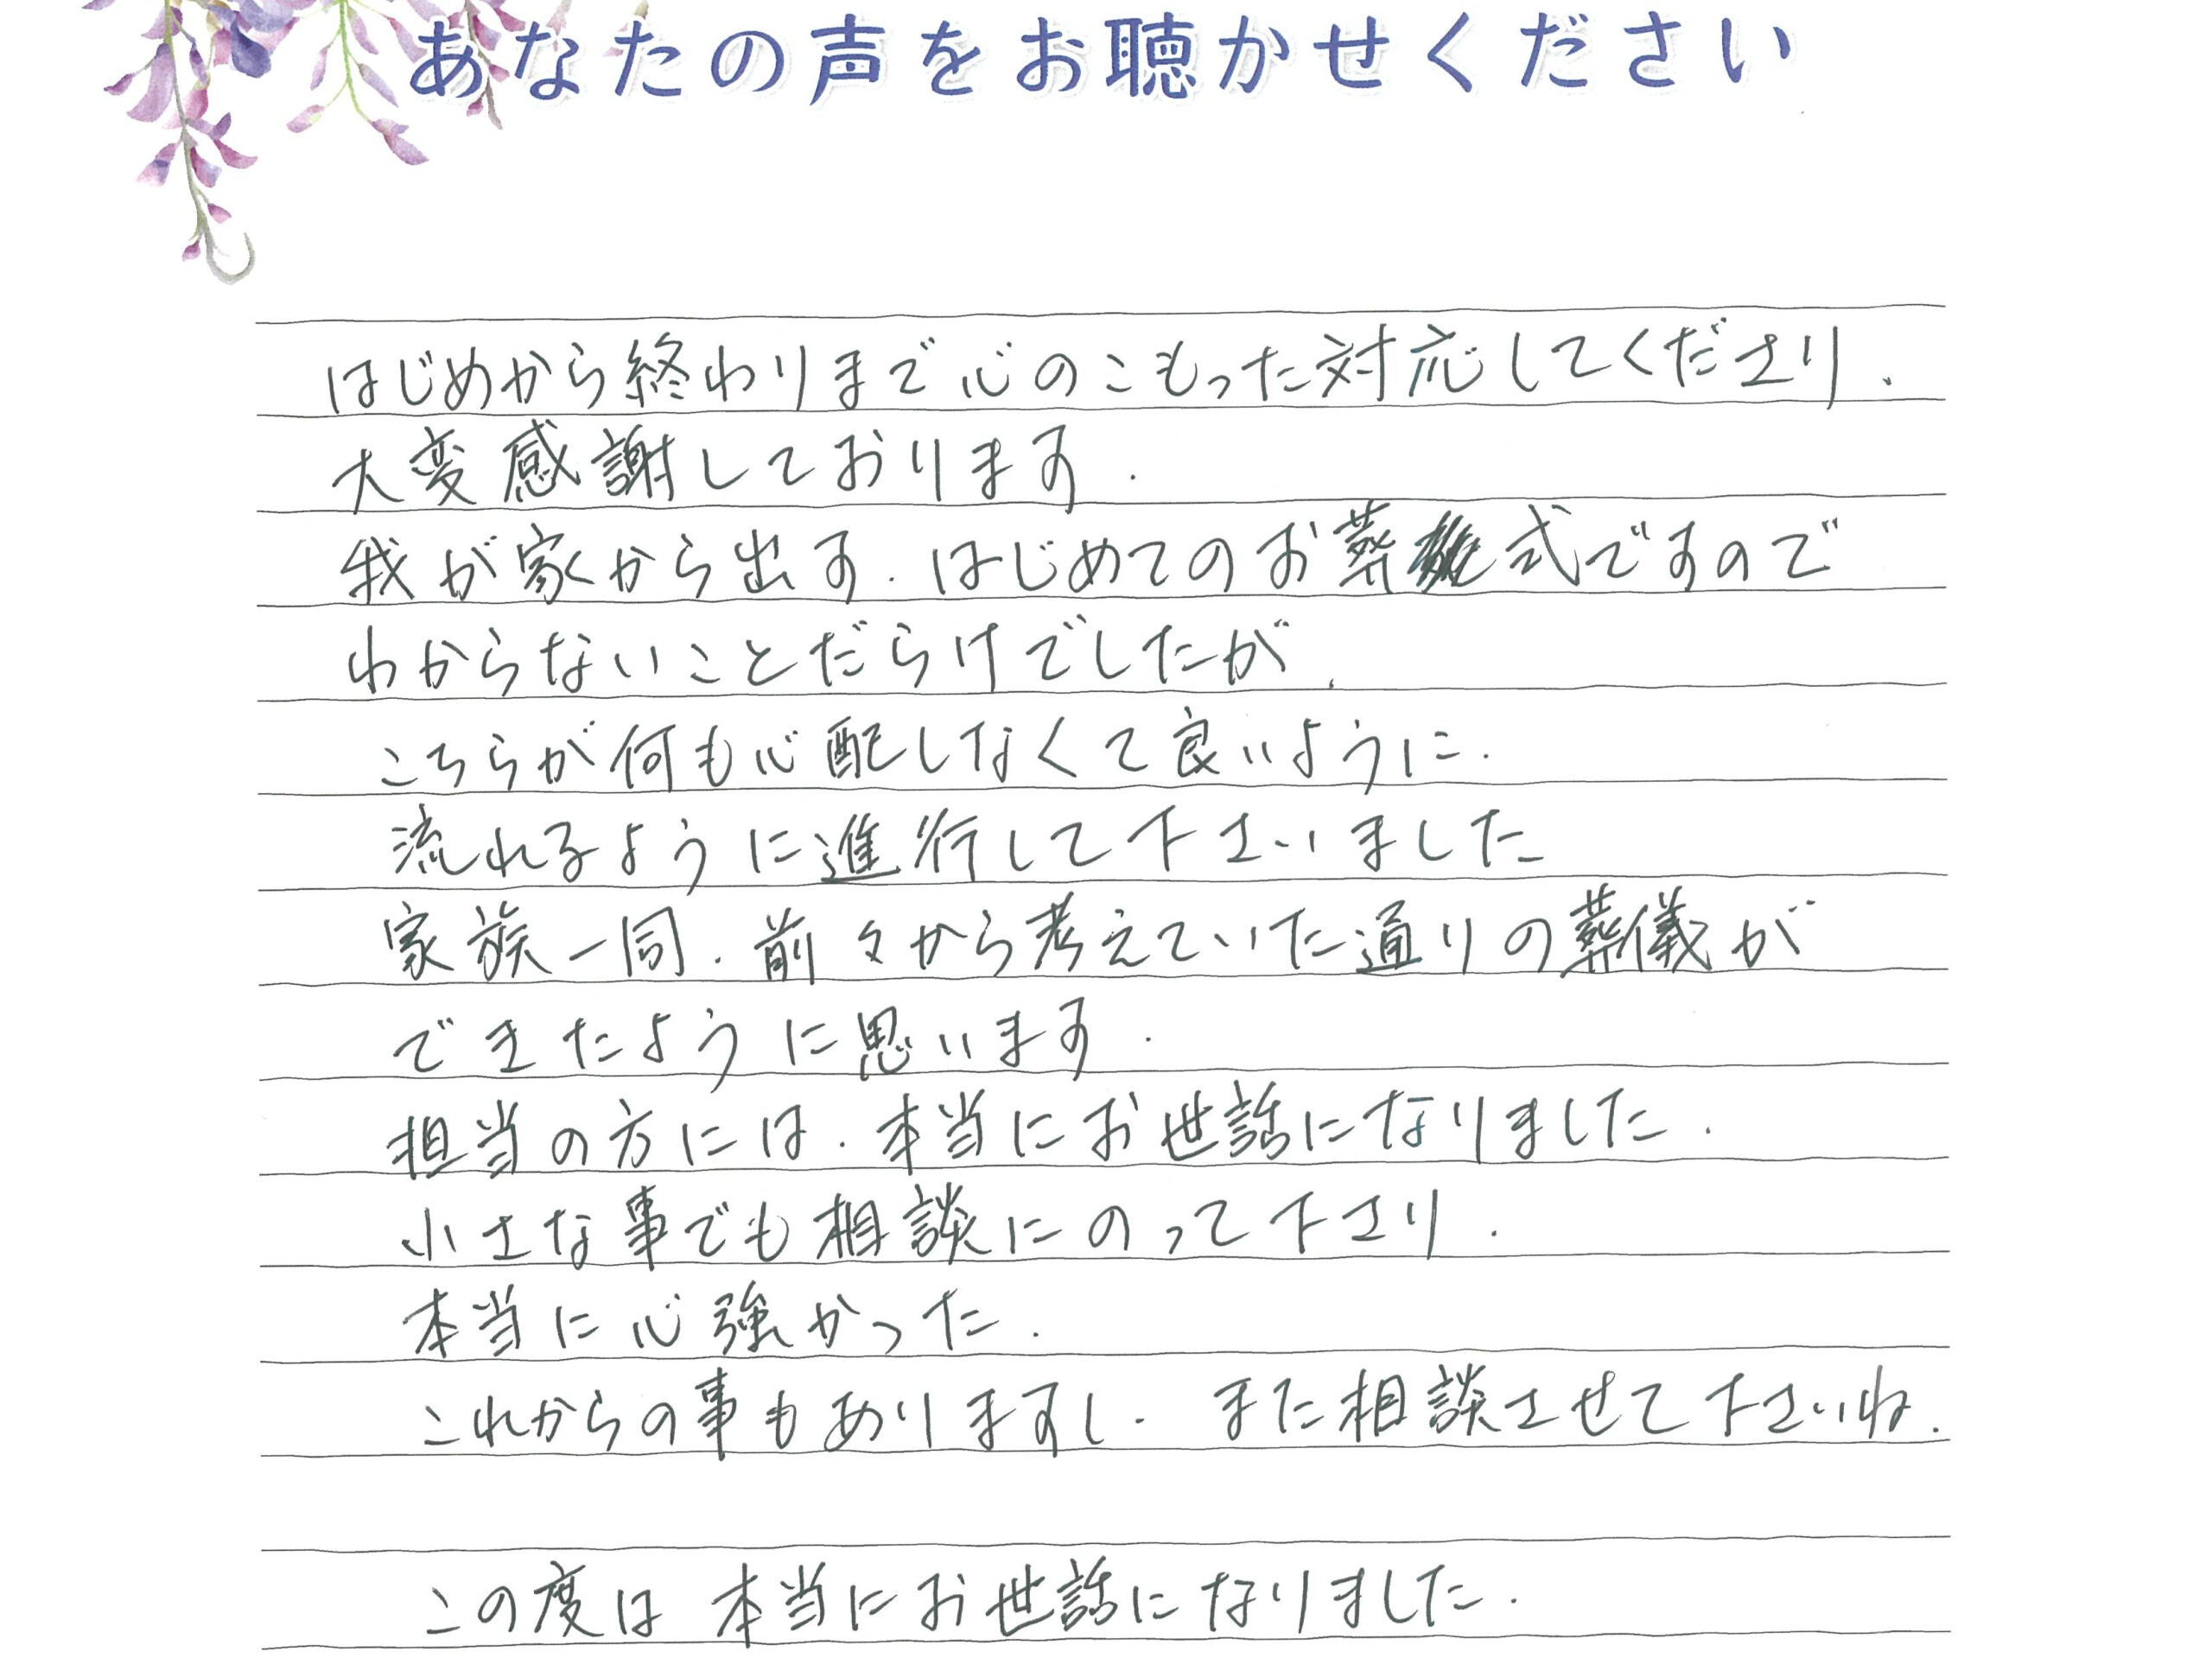 あなたの声をお聴かせください
はじめから終わりまで心のこもった対応してくださり.
大変感謝しております.
我が家から出す.はじめてのお葬式ですので
わからないことだらけでしたが.
こちらが何も心配しなくて良いように.
流れるように進行して下さいました
家族一同.前々から考えていた通りの葬儀が
できたように思います.
担当の方には.本当にお世話になりました.
小さな事でも相談にのって下さり.
本当に心強かった.
これからの事もありますし. また相談させて下さいね.
この度は 本当にお世話になりました.